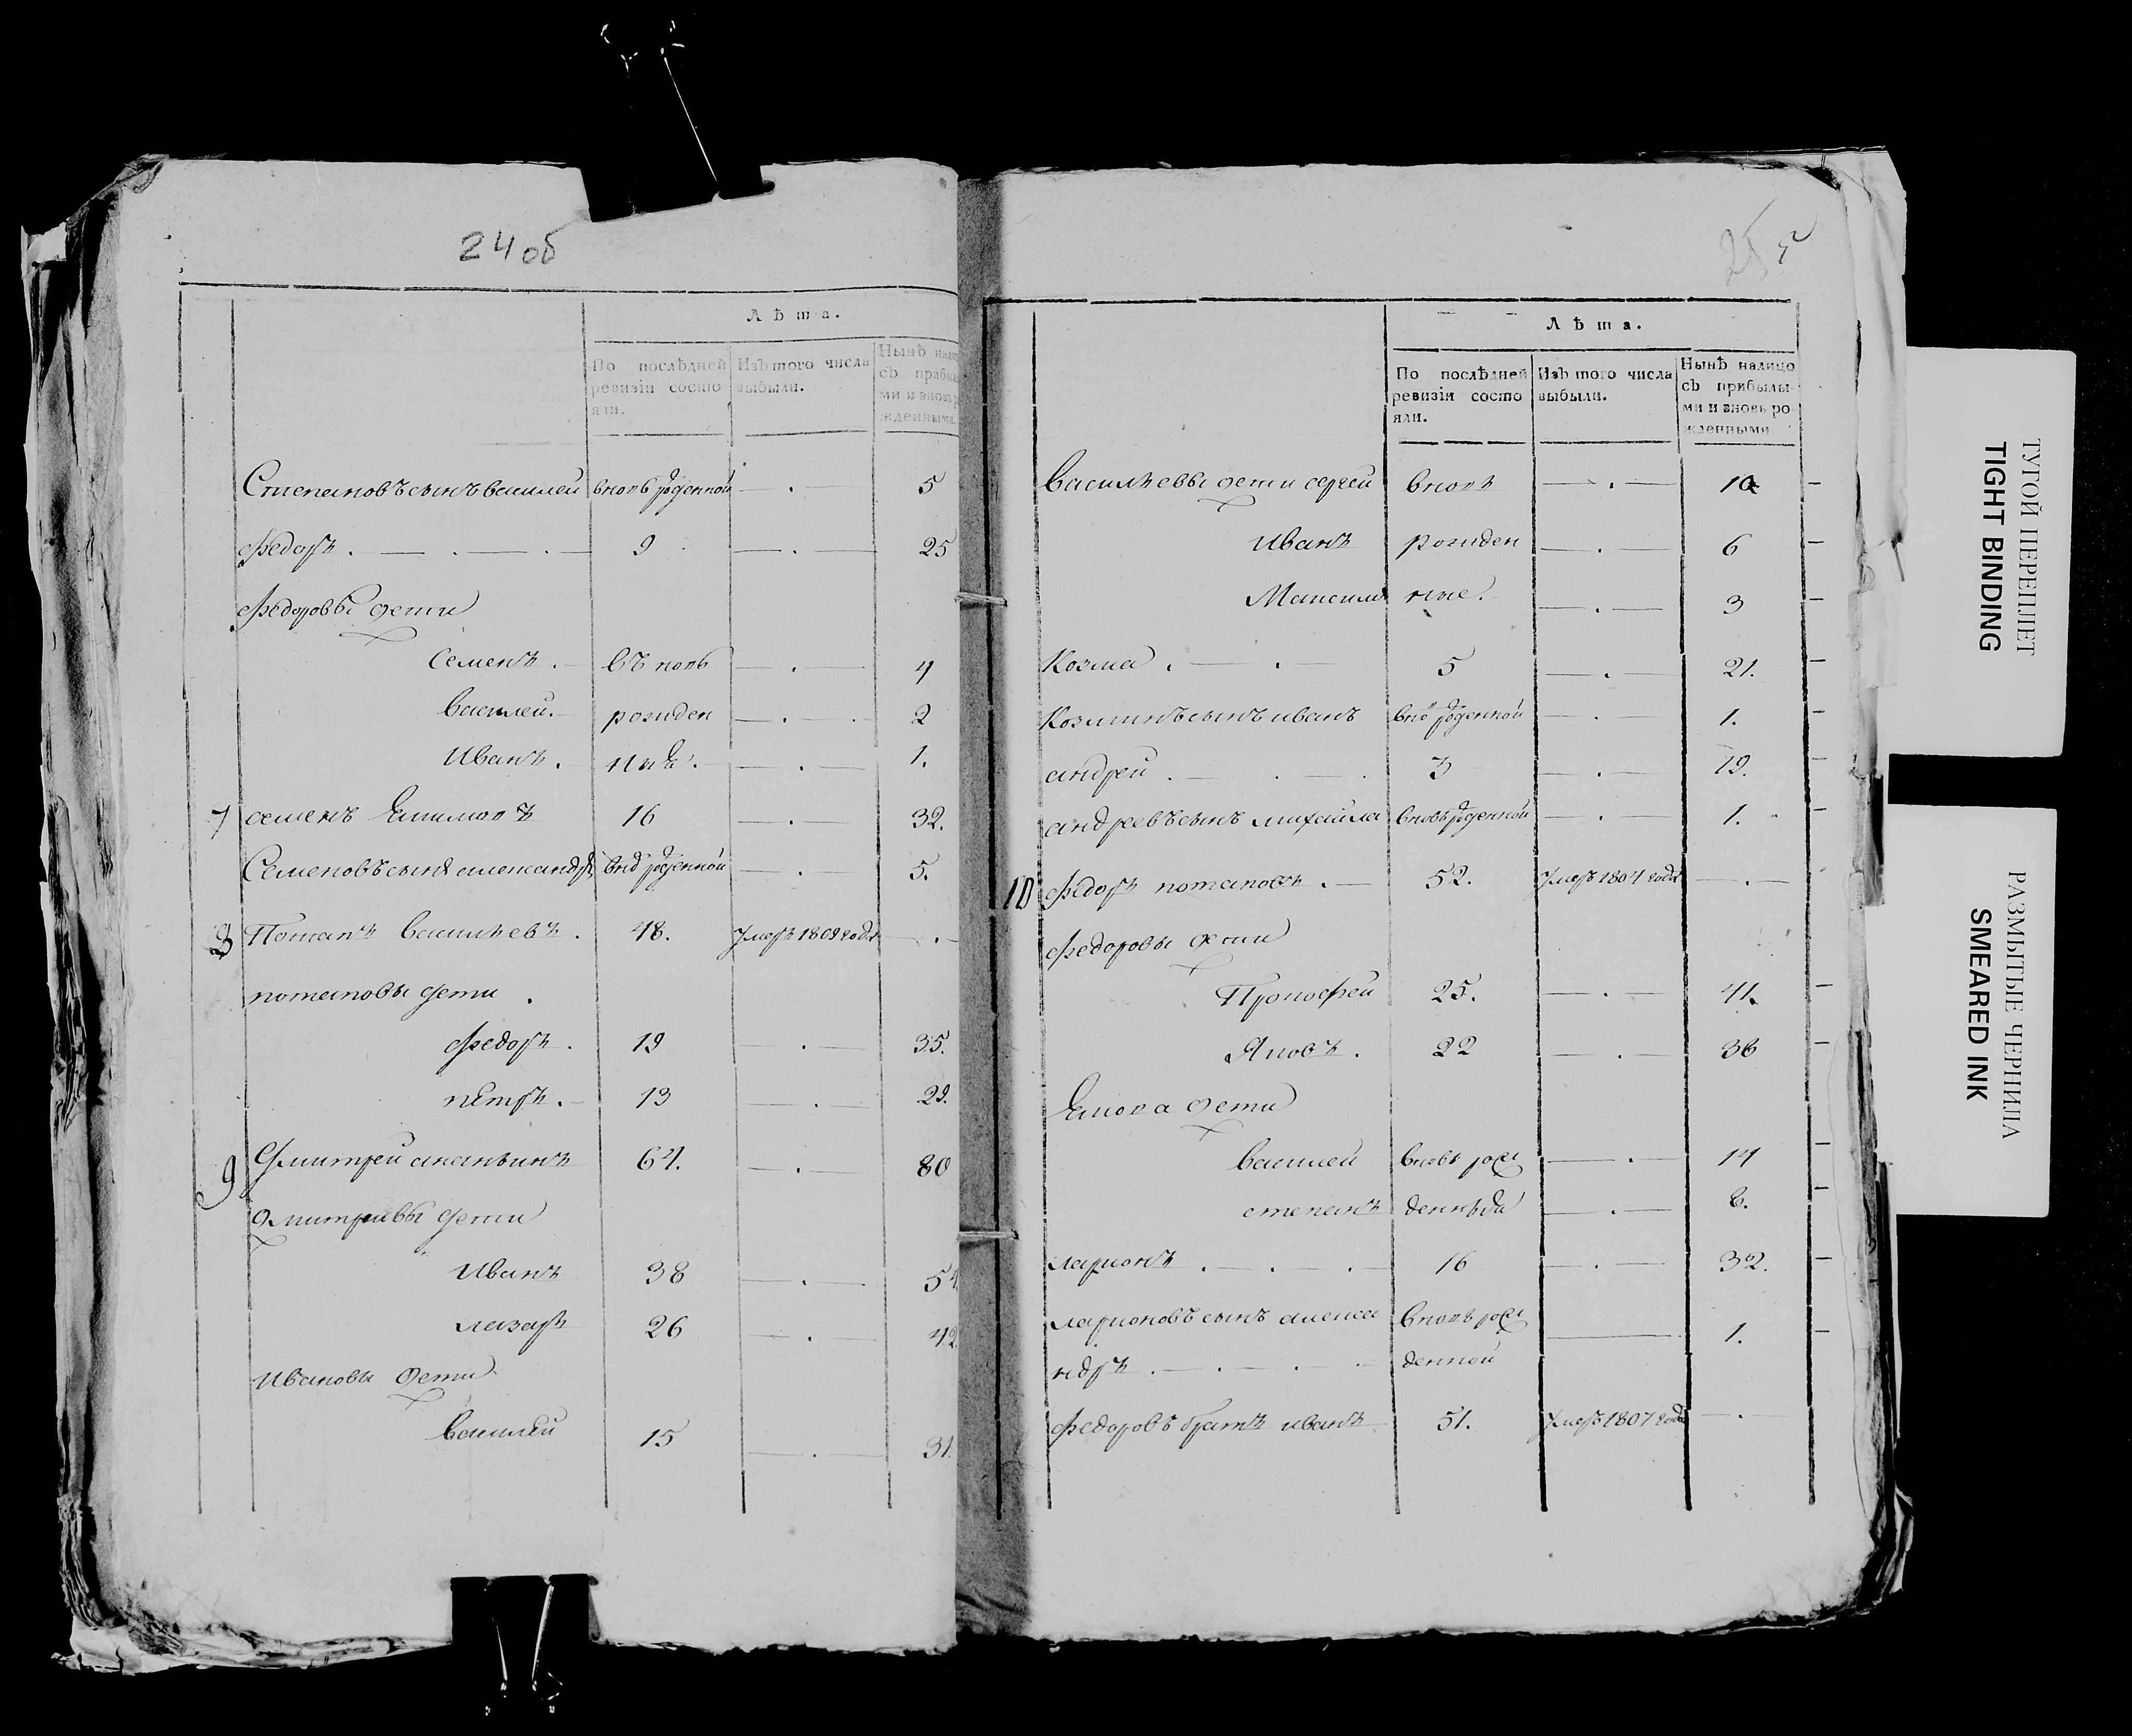 24 об
Лѣта.
По послѣдней
ревизіи состо
яли.
Изъ того числа
выбыли.
Нынѣ нали
съ прибы
ми и вновь р
жденными.
Степановъ сынъ василей вновь рожденной — . — 5
федоръ . — . — . — 9 — . — 25
федоровы дети
семенъ . въ новь — . — 4
василей. рожден — . — 2
Иванъ . — . — 1.
7 семенъ 16 — . — 32.
Семеновъ сынъ александръ внов рожденной — . 5.
8 Потапъ васильевъ . 48. умеръ 1809 года — . —
потаповы дети .
федоръ . 19 — . — 35.
петръ . — 13 — . — 29.
9 Дмитрей ананьинъ 64. — . — 80
дмитриевы дети
Иванъ 38 — . — 54
лазарь 26 — . — 42
Ивановы дети
василей 15 — . — 31.
25
Лѣта.
По послѣдней
ревизіи состо
яли.
Изъ того числа
выбыли.
Нынѣ налицо
съ прибылы-
ми и вновь ро-
жденными.
Васильевы дети сергей вновь — . — 10
Иванъ рожден — . — 6
Максимъ ные. — . — 3
Козма . — . — 5 — . — 21.
Козминъ сынъ иванъ внов рожденной — . 1.
андрей . — . — . 3 — . — 19.
андреевъ сынъ михайла вновь рожденной — . — 1.
10 федоръ потаповъ . — 52. умеръ 1804 года — . —
федоровы дети
Прокофей 25. — . — 41.
Яковъ . 22 — . — 38
Якова дети
василей вновь рож — . — 14
степанъ — . — 8.
ларионъ . — . — . — 16 — . — 32.
ларионовъ сынъ алекса вновь рож — 1.
ндръ . — . — . — . денной
федоровъ братъ иванъ 51. умеръ 1807 года — .
ТУГОЙ ПЕРЕПЛЕТ
TIGHT BINDING
РАЗМЫТЫЕ ЧЕРНИЛА
SMEARED INK